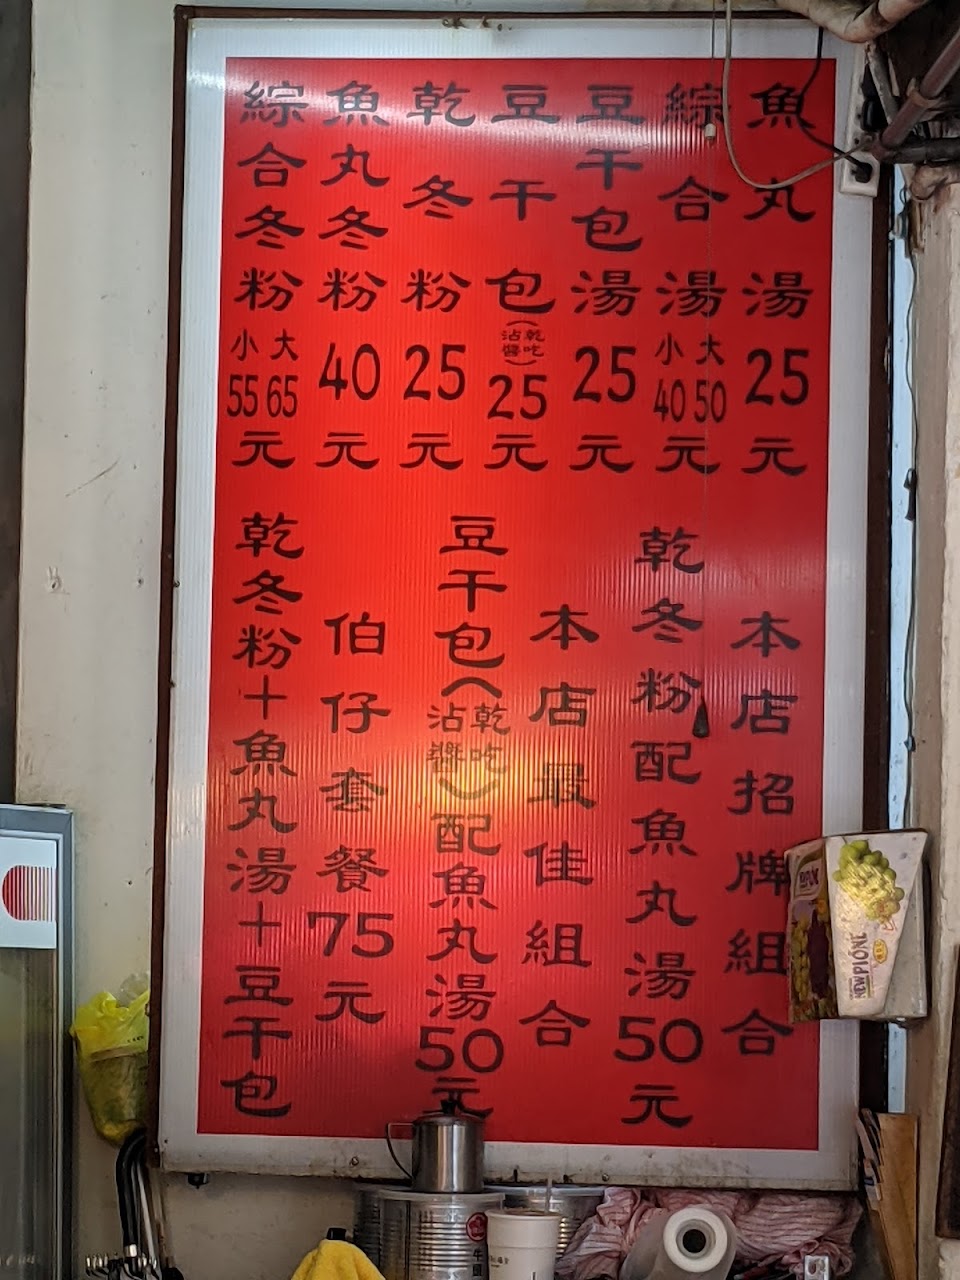 魚丸湯25元
綜合湯大50小40元
豆干包湯25元
豆干包(乾吃沾醬)25元
乾冬粉25元
魚丸冬粉40元
綜合冬粉大65小55元
本店招牌組合
乾冬粉配魚丸湯50元
本店最佳組合
豆干包(乾吃沾醬)配魚丸湯50元
伯仔套餐75元
乾冬粉十魚丸湯十豆干包
NEWPIONE